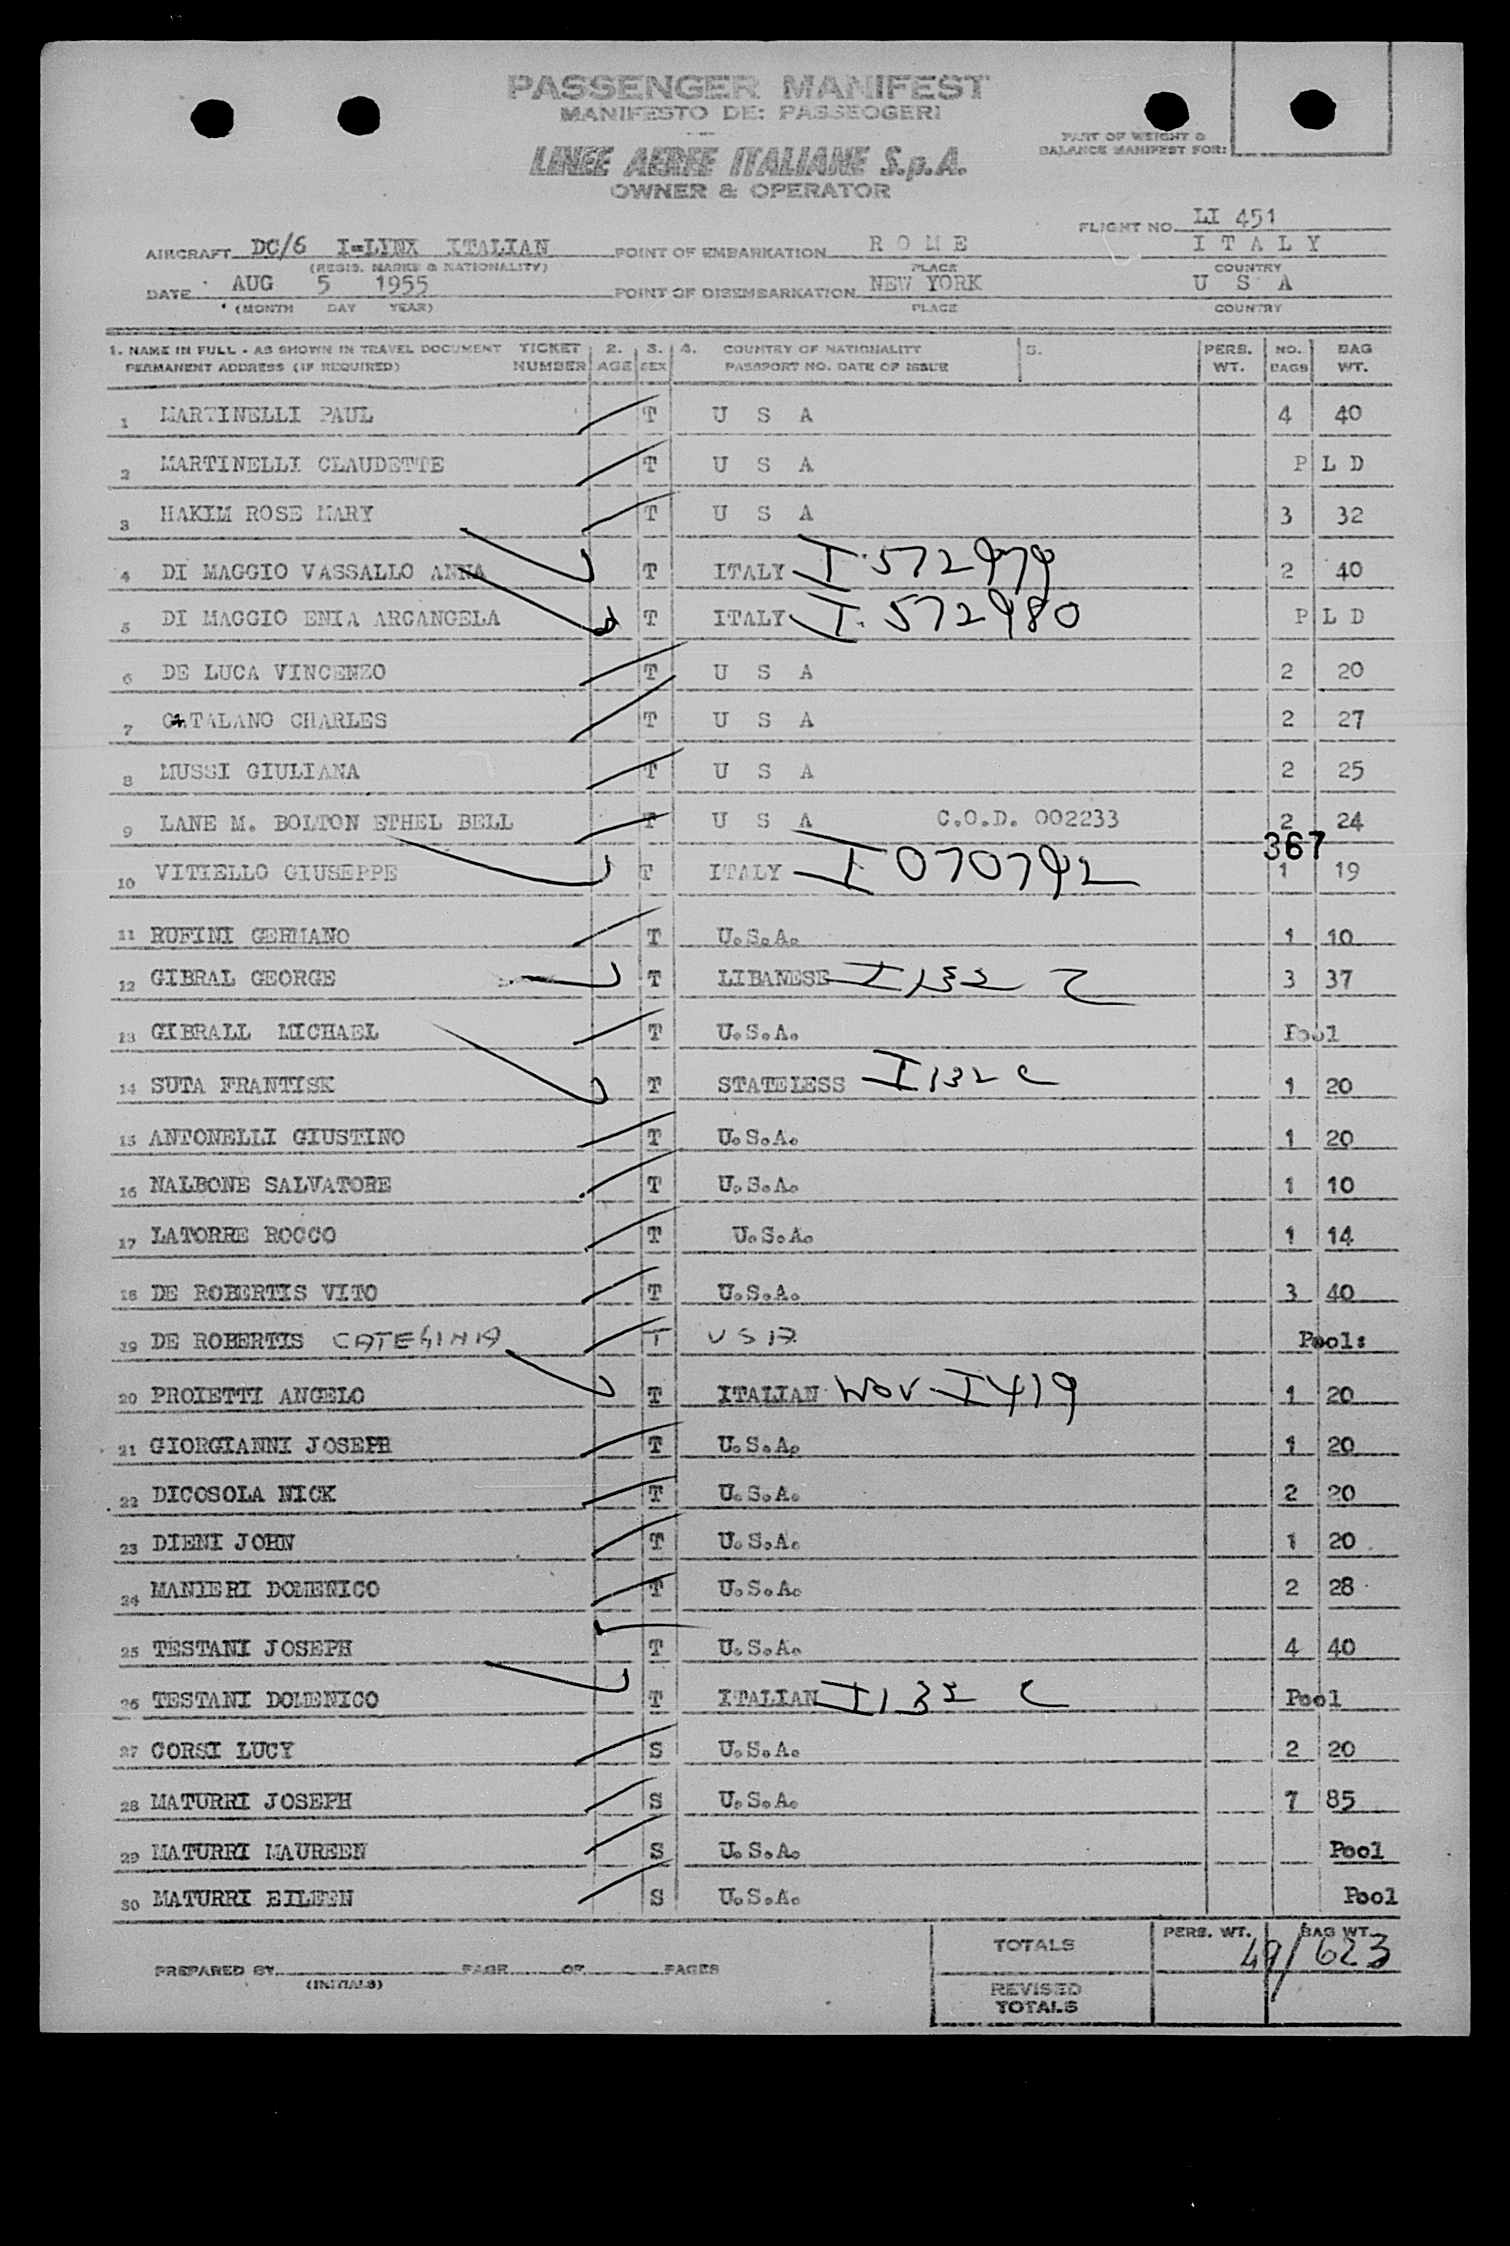 PASSENGER MANIFEST
MANIFESTO DEI PASSEGGERI
PART OF WEIGHT &
BALANCE MANIFEST FOR:
LINEE AEREE ITALIANE S.p.A.
OWNER & OPERATOR
FLIGHT NO. LI 451
AIRCRAFT DC/6 I-LYNX ITALIAN POINT OF EMBARKATION R O M E I T A L Y
(REGIS. MARKS & NATIONALITY) PLACE COUNTRY
DATE AUG 5 1955 POINT OF DISEMBARKATION NEW YORK U S A
(MONTH DAY YEAR) PLACE COUNTRY
1. NAME IN FULL - AS SHOWN IN TRAVEL DOCUMENT TICKET 2. 3. 4. COUNTRY OF NATIONALITY 5. PERS. NO. BAG
PERMANENT ADDRESS (IF REQUIRED) NUMBER AGE SEX PASSPORT NO. DATE OF ISSUE WT. BAGS WT.
1 MARTINELLI PAUL T U S A 4 40
2 MARTINELLI CLAUDETTE T U S A P L D
3 HAKIM ROSE MARY T U S A 3 32
4 DI MAGGIO VASSALLO ANNA T ITALY I. 572979 2 40
5 DI MAGGIO ENIA ARCANGELA T ITALY I. 572980 P L D
6 DE LUCA VINCENZO T U S A 2 20
7 CATALANO CHARLES T U S A 2 27
8 MUSSI GIULIANA T U S A 2 25
9 LANE M. BOLTON ETHEL BELL T U S A C.O.D. 002233 2 24
367
10 VITIELLO GIUSEPPE T ITALY I 070792 1 19
11 RUFINI GERMANO T U.S.A. 1 10
12 GIBRAL GEORGE T LIBANESE I 132 C 3 37
13 GIBRALL MICHAEL T U.S.A. Pool
14 SUTA FRANTISK T STATELESS I 132 C 1 20
15 ANTONELLI GIUSTINO T U.S.A. 1 20
16 NALBONE SALVATORE T U.S.A. 1 10
17 LATORRE ROCCO T U.S.A. 1 14
18 DE ROBERTIS VITO T U.S.A. 3 40
19 DE ROBERTIS T USA Pool:
20 PROIETTI ANGELO T ITALIAN I 419 1 20
21 GIORGIANNI JOSEPH T U.S.A. 1 20
22 DICOSOLA NICK T U.S.A. 2 20
23 DIENI JOHN T U.S.A. 1 20
24 MANIERI DOMENICO T U.S.A. 2 28
25 TESTANI JOSEPH T U.S.A. 4 40
26 TESTANI DOMENICO T ITALIAN I 132 C Pool
27 CORSI LUCY S U.S.A. 2 20
28 MATURRI JOSEPH S U.S.A. 7 85
29 MATURRI MAUREEN S U.S.A. Pool
30 MATURRI EILEEN S U.S.A. Pool
TOTALS PERS. WT. BAG WT.
49/623
PREPARED BY PAGE OF PAGES
(INITIALS)
REVISED
TOTALS